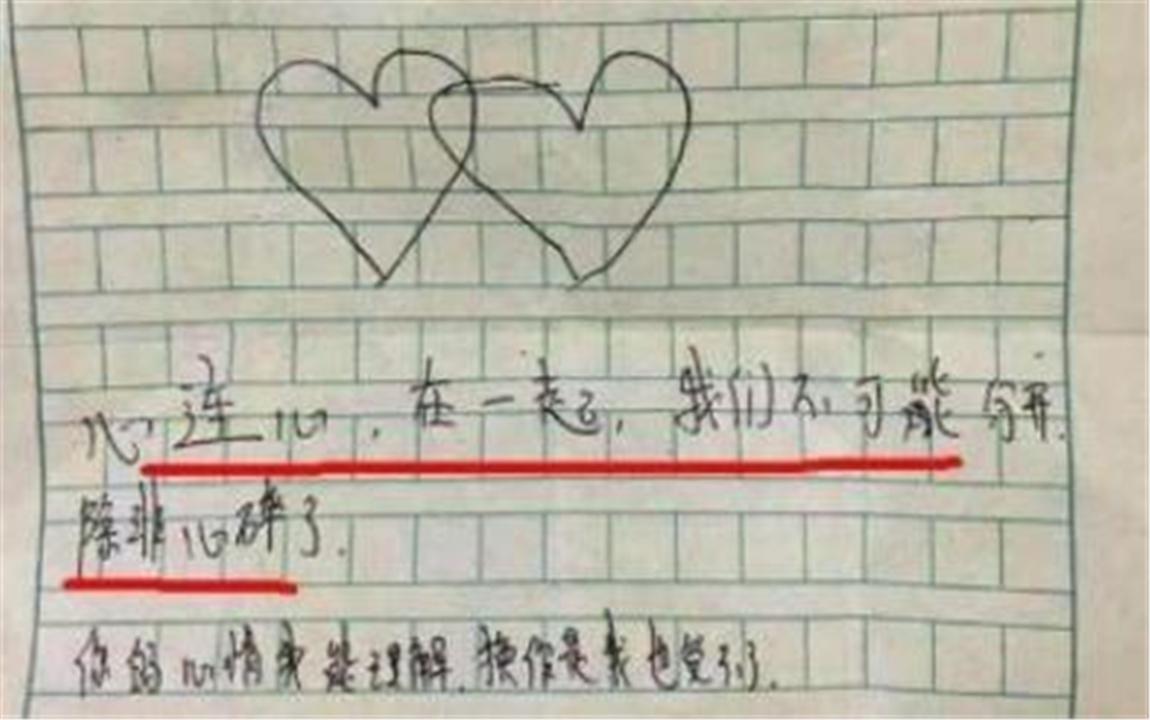 心连心，在一起，我们不可能分开.
除非心碎了.
你的心情我能理解.换作是我也受不了.